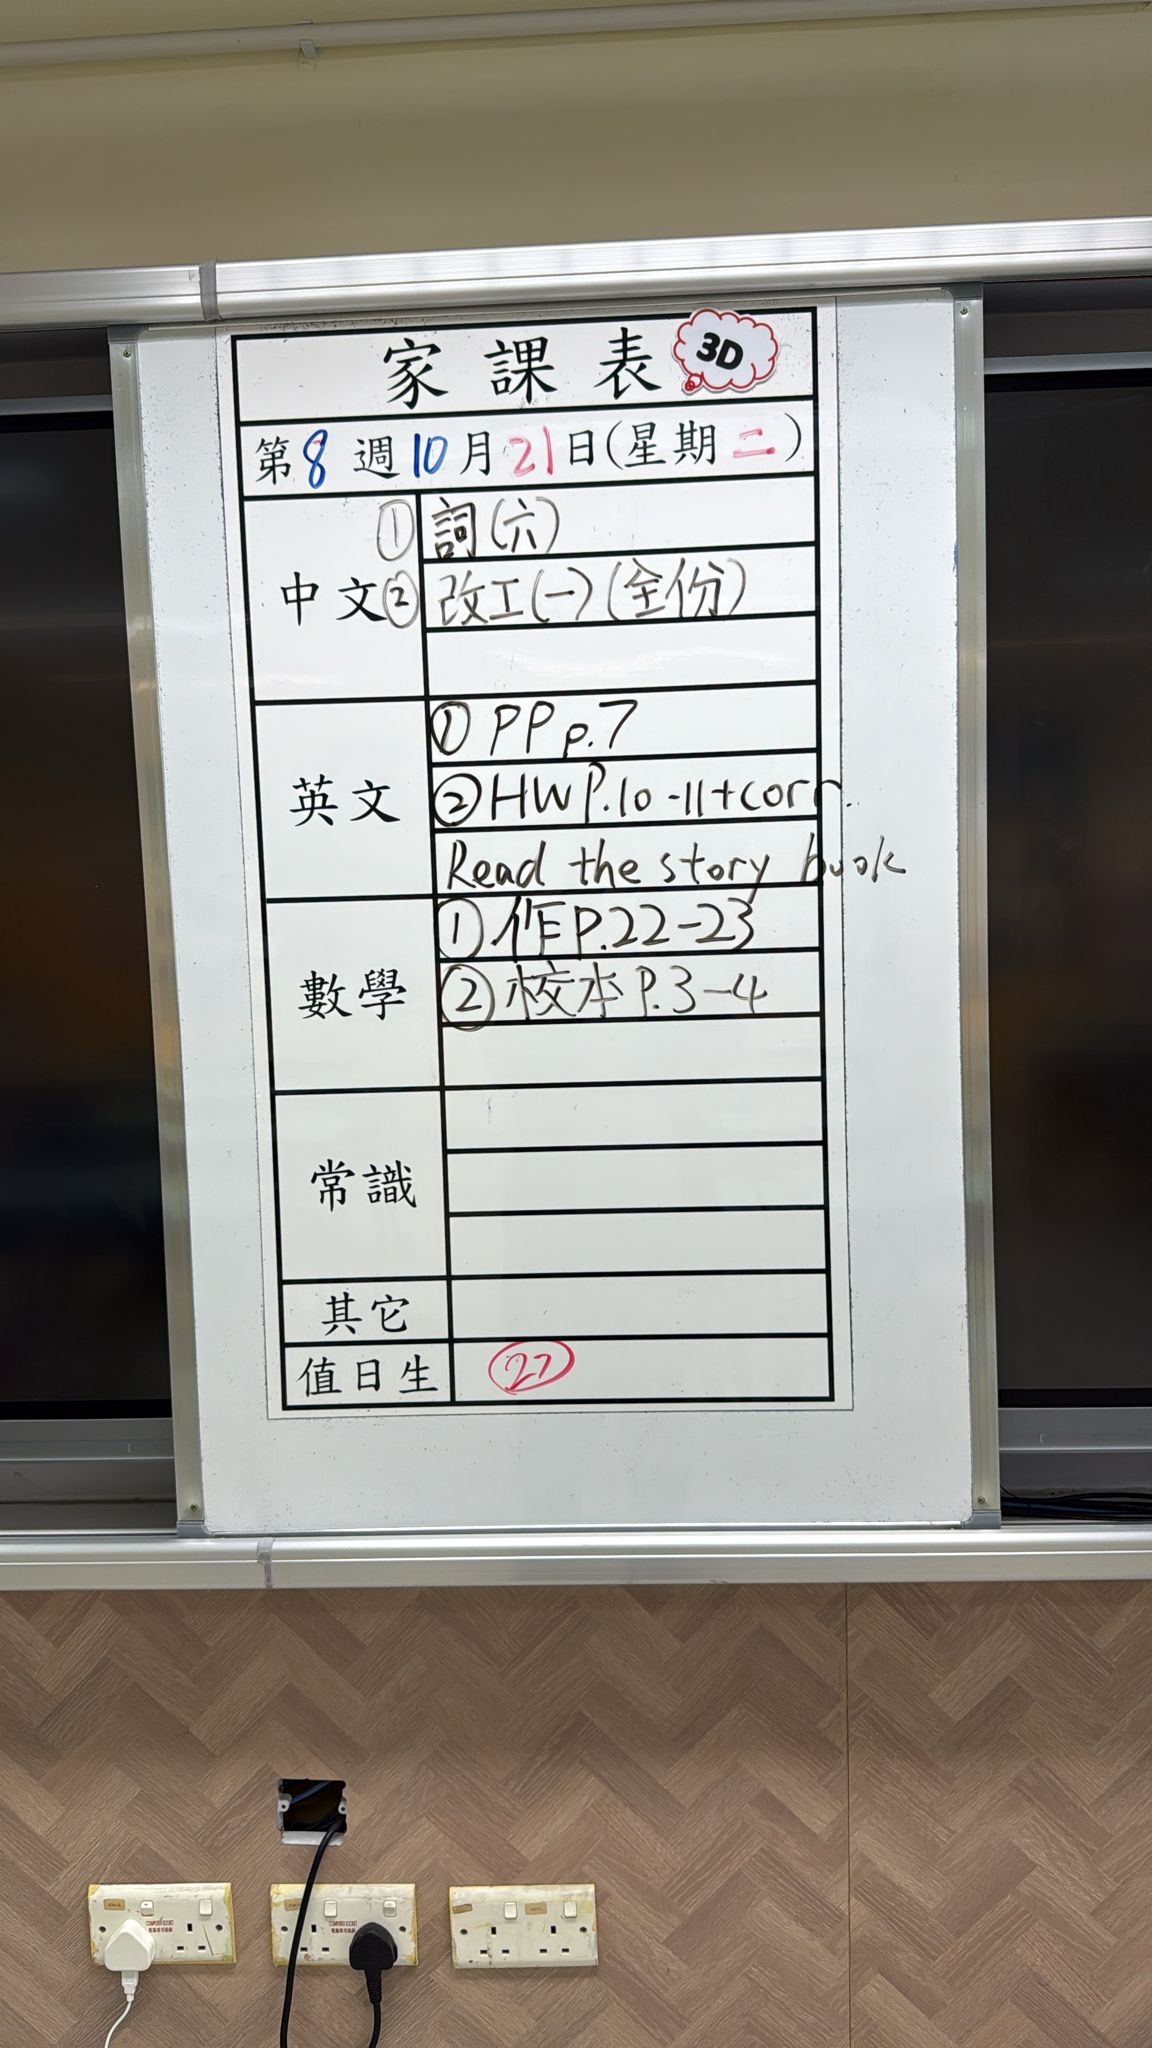 家課表 3D
第8週10月21日(星期二)
中文
① 詞(六)
② 改工(一)(全份)
英文
① PP p.7
② HW P.10-11+corr.
Read the story book
數學
① 作P.22-23
② 校本P.3-4
常識
其它
值日生 27
COMPUTER SOCKET
COMPUTER SOCKET